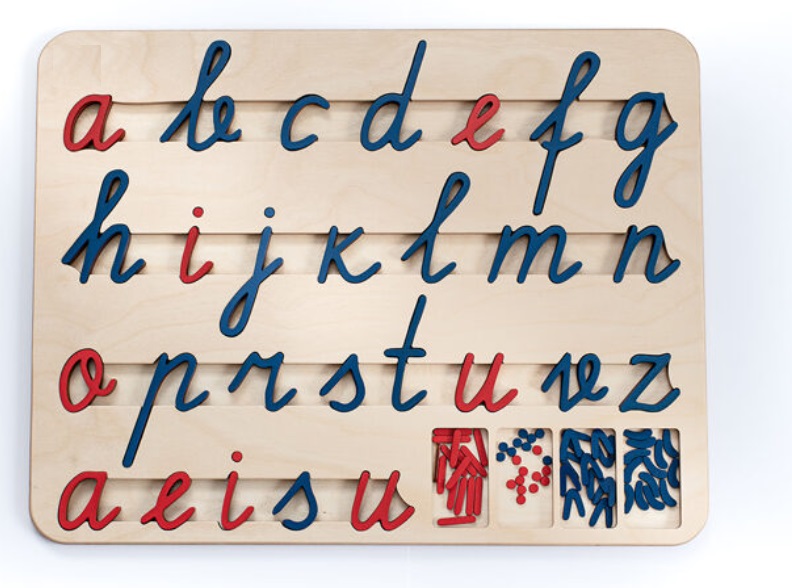 a b c d e f g
h i j k l m n
o p r s t u v z
a e i s u